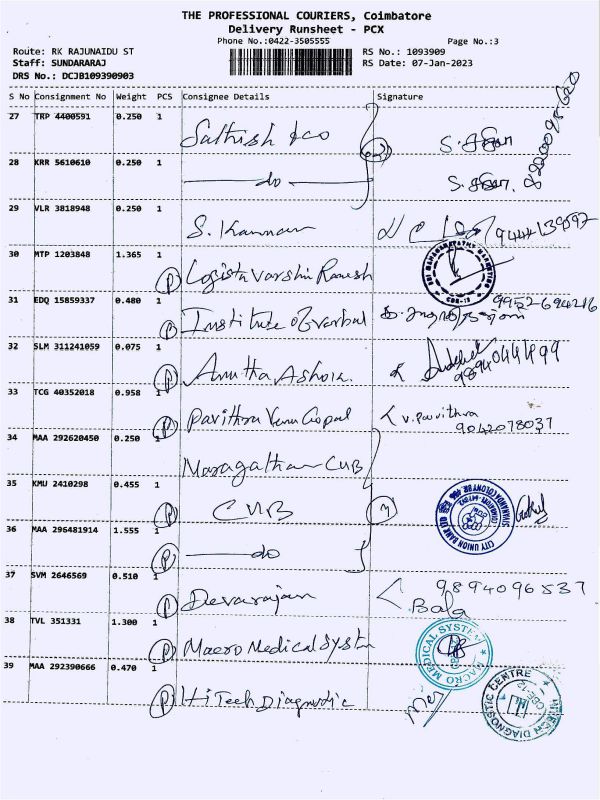 THE PROFESSIONAL COURIERS, Coimbatore
Delivery Runsheet - PCX
Phone No.:0422-3505555 Page No.:3
Route: RK RAJUNAIDU ST RS No.: 1093909
Staff: SUNDARARAJ RS Date: 07-Jan-2023
DRS No.: DCJB109390903
S No Consignment No Weight PCS Consignee Details Signature
27 TRP 4400591 0.250 1
Sathish & co
28 KRR 5610610 0.250 1
do
29 VLR 3818948 0.250 1
S. Kannan
30 MTP 1203848 1.365 1
P Logista Varshi Ramesh
31 EDQ 15859337 0.480 1 9952694216
P Institute of verbal
32 SLM 311241059 0.075 1
P Amutha Ashok. 9894044499
33 TCG 40352018 0.958 1
P Pavithra Venu Gopal v. pavithra
9042078037
34 MAA 292620450 0.250 1
Maragatham CUB
35 KMU 2410298 0.455 1
P CUB
CITY UNION BANK LTD
36 MAA 296481914 1.555 1
P do
37 SVM 2646569 0.510 1 9894096537
P Devarajan Bala
38 TVL 351331 1.300 1
P Macro Medical System MACRO MEDICAL SYSTEM
39 MAA 292390666 0.470 1
P HiTech Diagnostic HITECH DIAGNOSTIC CENTRE